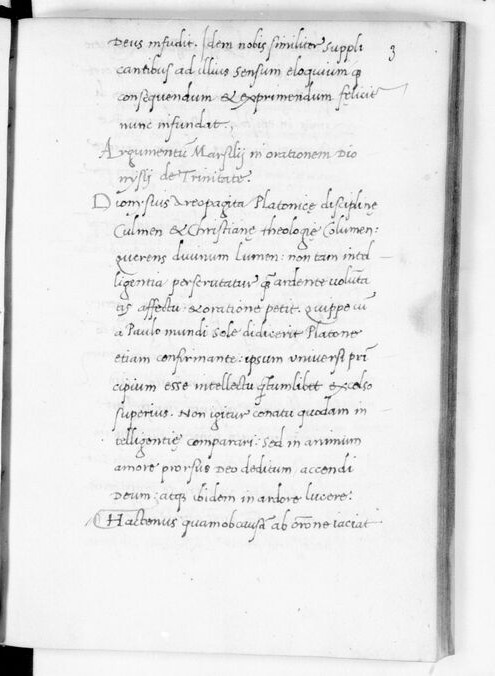 Deus infudit. Idem nobis similiter suppli
3
cantibus ad illius sensum eloquium q̃
consequendum & exprimendum fęlicit̃
nunc infundat.
Argumentũ Marsilij in orationem Dio
nysij de Trinitate.
Dionysius Areopagita Platonicę disciplinę
Culmen & Christianę theologię Columen:
querens diuinum lumen: non tam intel
ligentia perscrutatur q̃ ardente volũta
tis affectu & oratione petit. Quippe cũ
a Paulo mundi Sole didicerit Platone
etiam confirmante: ipsum vniuersi prĩ
cipium esse intellectu q̃tumlibet excelso
superius. Non igitur conatu quodam in
telligentię comparari. Sed in animum
amore prorsus Deo deditum, accendi
Deum; atq; ibidem in ardore lucere.
Hactenus quamobcausã ab orõne iaciat